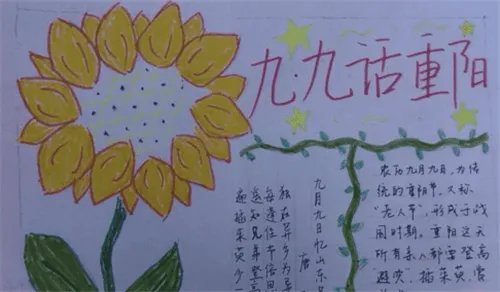 九·九话重阳
九月九日忆山东兄
唐
独在异乡为异
每逢佳节倍思
遥知兄弟登高
遍插茱萸少一
农历九月九日,为传
统的重阳节,又称
“老人节”,形成于战
国时期。重阳这天
所有亲人都要登高
“避灾”,插茱萸、赏